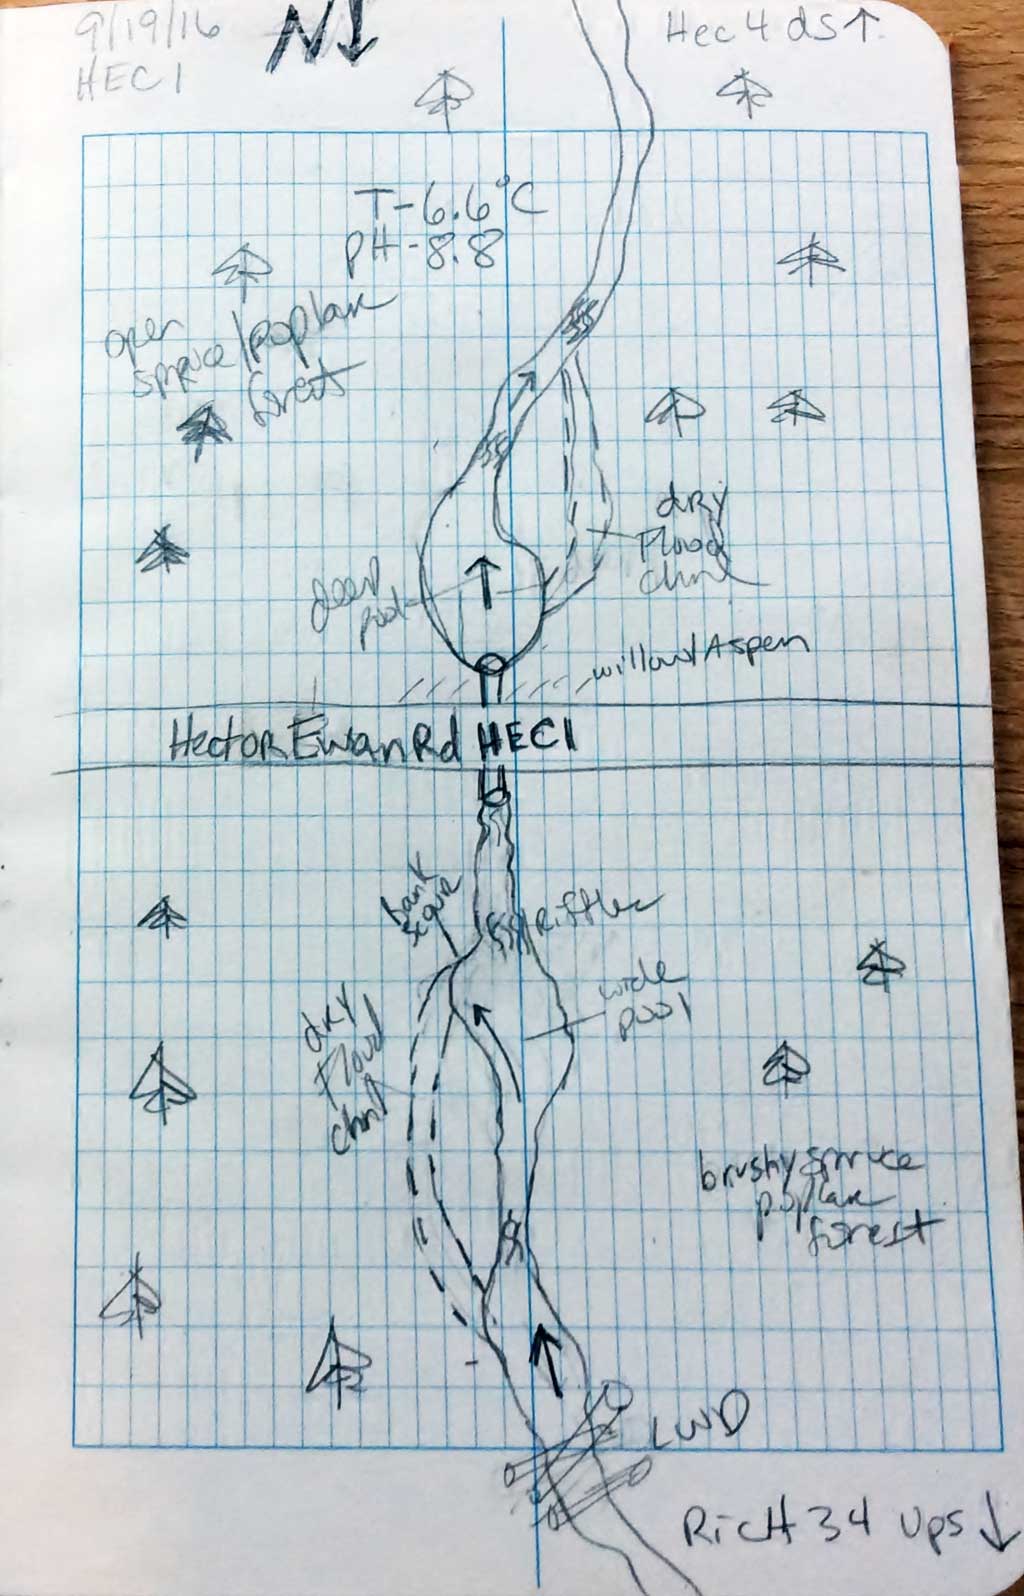 9/19/16
HEC1
N
Hec 4 ds ↑
T-6.6°C
PH-8.8
open
spruce/poplar
forest
dry
Flood
chnl
deep
pool
willow/Aspen
Hector Ewan Rd HEC1
bank
scour
Riffles
wide
pool
dry
Flood
chnl
brushy spruce
poplar
forest
LWD
RicH 34 ups ↓